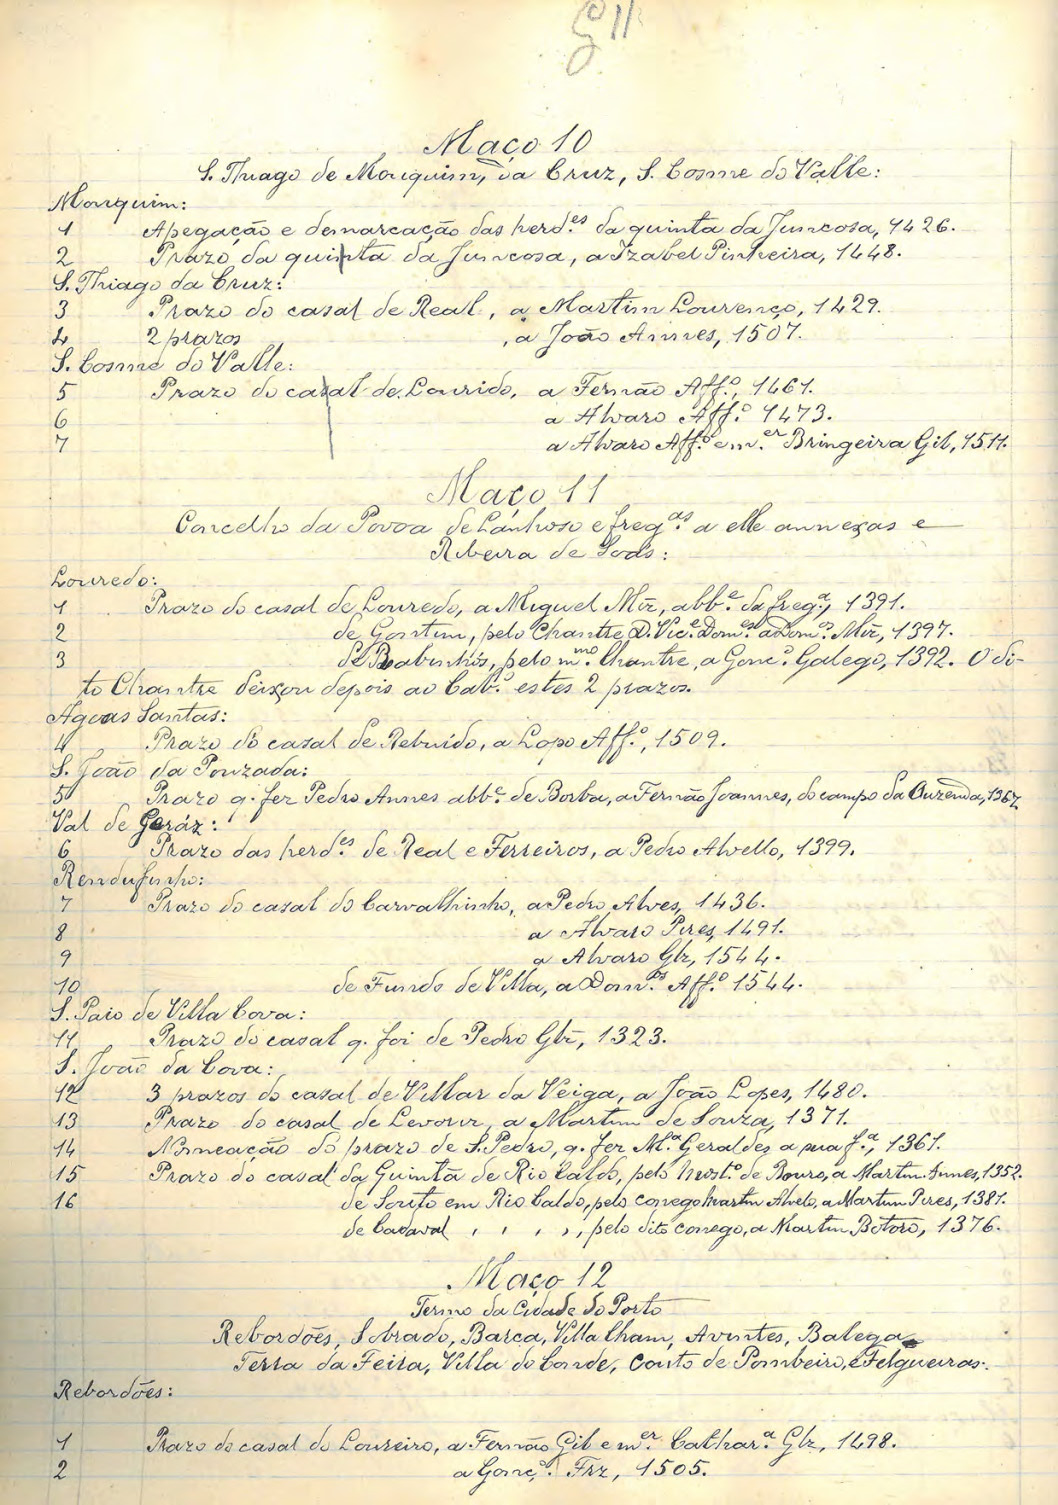 Maço 10
S. Thiago de Mouquim, da Cruz, S. Cosme do Valle:
Mouquim:
1 Apegação e demarcação das herd.es da quinta da Juncosa, 1426.
2 Prazo da quinta da Juncosa, a Izabel Pinheira, 1448.
S. Thiago da Cruz:
3 Prazo do casal de Real, a Martim Lourenço, 1429.
4 2 prazos , a João Annes, 1507.
S. Cosme do Valle:
5 Prazo do casal de Lourido, a Fernão Aff.º, 1461.
6 a Alvaro Aff.º 1473.
7 a Alvaro Aff.º e m.er Bringeira Gil, 1511.
Maço 11
Concelho da Povoa de Lanhoso e freg.as a elle annexas e
Ribeira de Soás:
Louredo:
1 Prazo do casal de Louredo, a Miguel Miz, abb.e da freg.a, 1391.
2 de Gontim, pelo Chantre D. Vic.e Dom.es a Dom.os Miz, 1397.
3 de Babinhós, pelo m.mo Chantre, a Gonç.º Galego, 1392. O di-
to Chantre deixou depois ao Cab.º estes 2 prazos.
Agoas Santas:
4 Prazo do casal de Rebuído, a Lopo Aff.º, 1509.
S. João da Pouzada:
5 Prazo q. fez Pedro Annes abb.e de Borba, a Fernão Joannes, do campo da Ouzenda, 1367.
Val de Geráz:
6 Prazo das herd.es de Real e Ferreiros, a Pedro Alvello, 1399.
Rendufinho:
7 Prazo do casal do Carvalhinho, a Pedro Alves, 1436.
8 a Alvaro Pires, 1491.
9 a Alvaro Glz, 1544.
10 de Fundo de Villa, a Dom.os Aff.º 1544.
S. Paio de Villa Cova:
11 Prazo do casal q. foi de Pedro Glz, 1323.
S. João da Cova:
12 3 prazos do casal de Villar da Veiga, a João Lopes, 1480.
13 Prazo do casal de , a Martim de Souza, 1371.
14 Nomeação do prazo de S. Pedro, q. fez M.a Geraldes a sua f.a, 1361.
15 Prazo do casal da Quintã de Rio Caldo, pelo Most.º de Bouro, a Martim Annes, 1352.
16 de Souto em Rio Caldo, pelo conego Martim Alvelo, a Martim Pires, 1381.
de Cadaval , , , , , pelo dito conego, a Martim Botoro, 1376.
Maço 12
Termo da Cidade do Porto
Rebordões, Sobrado, Barca, Villa Cham, Avintes, Balega
Terra da Feira, Villa do Conde, Couto de Pombeiro, e Felgueiras:
Rebordões:
1 Prazo do casal do Loureiro, a Fernão Gil e m.er Cathar.a Glz, 1498.
2 a Gonç.º Frz, 1505.